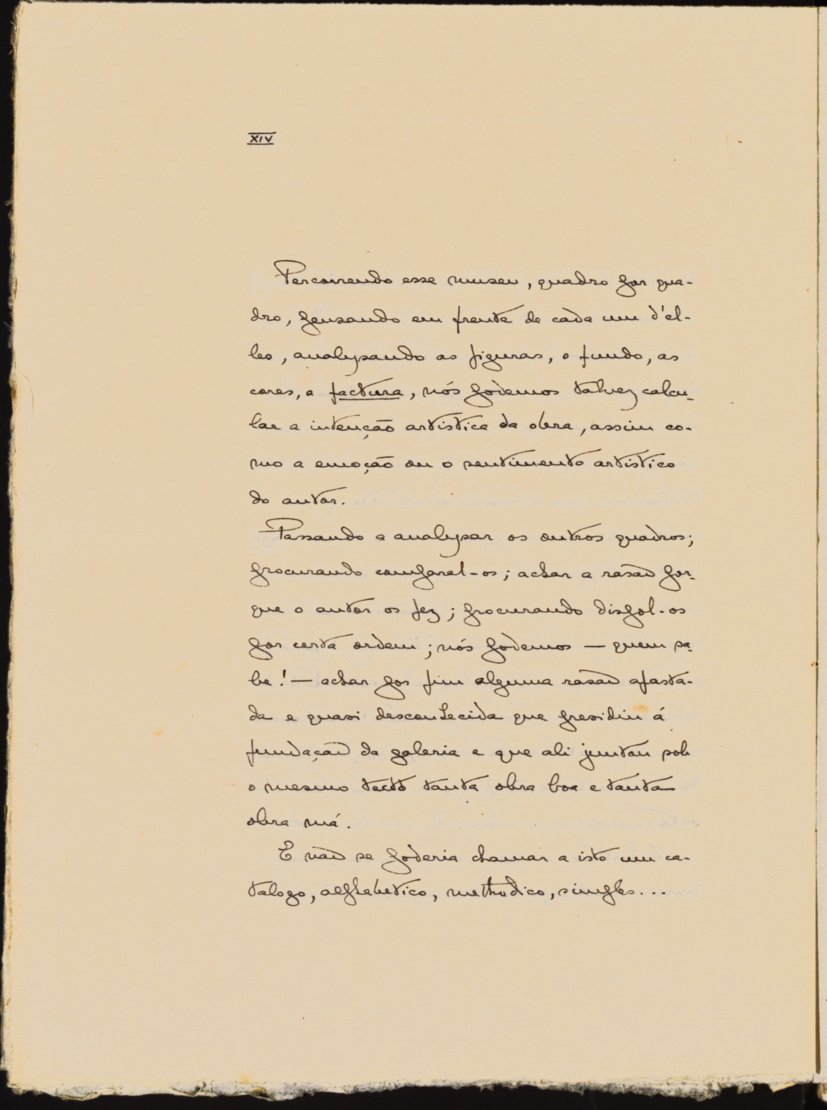 XIV
Percorrendo esse museu, quadro por qua-
dro, pensando em frente de cada um d'el-
les, analysando as figuras, o fundo, as
cores, a factura, nós podemos talvez calcu-
lar a intenção artistica da obra, assim co-
mo a emoção ou o sentimento artistico
do autor.
Passando a analysar os outros quadros;
procurando comparal-os; achar a rasão por-
que o autor os fez; procurando dispol-os
por certa ordem; nós podemos — quem sa-
be! — achar por fim alguma rasão afasta-
da e quasi desconhecida que presidiu á
fundação da galeria e que ali juntou sob
o mesmo tecto tanta obra boa e tanta
obra má.
E não se poderia chamar a isto um ca-
talogo, alphabetico, methodico, simples...